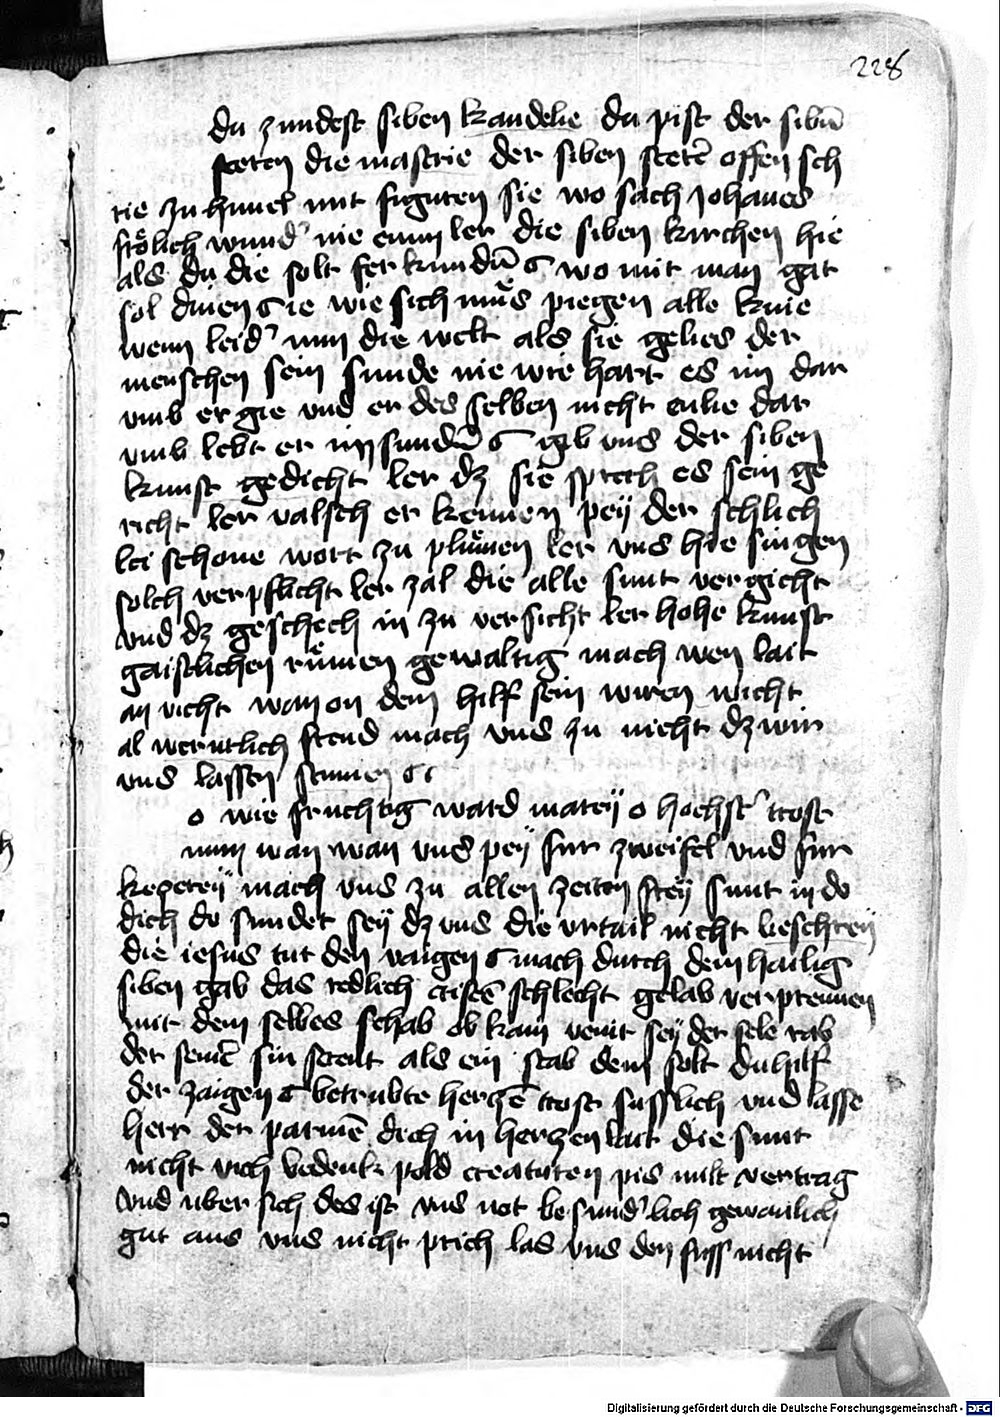 228
du zundest siben kandelie du pist der sibñ
steten die mastrie der siben stetẽ offen sch
rie zu himel mit figuren sie wo sach Johanes
frölich wund' nie einim ler die siben kirchen hie
als du die solt ferkundñ wo mit man gat
sol dinen sie wie sich mus piegen alle knie
wenn leid' nun die welt als sie gelies der
menschen sein sunde nie wie hart es im dar
umb er gie und er des selben nicht enlie dar
umb lebt er im sundñ gib uns der siben
kunst gedicht ler dz sie sprech es sein ge
richt ler valsch er kennen peÿ der schlich
lei schone wort zu plůmen ler uns hie singen
solch verpflicht ler zal die alle sunt vergicht
und dz geschech in zu versicht ler hohe kunst
gaistlichen růmen gewaltig mach wen lait
an vicht wan on dein hilf sein wiren wicht
al werntlich frend mach uns zu nicht dz wir
uns lassen
o wie fruchtig ward mareÿ o hochst' trost
nun wan uns peÿ fur zweifel und fur
keczereÿ mach uns zu allen zeiten freÿ sunt in do
dich do sunder seÿ dz uns die urtail nicht beschreÿ
die iesus tut den vaigen mach durch dein hailig
siben gab das redlich cristẽ schlecht gelab verprennen
mit dem selbes schab ob kain venit seÿ der sele rab
der sein stent als ein stab dem solt du hilf
der zaigen betrubte herczẽ trost susslich und lasse
herr der parmẽ dich in herczen lait die sunt
nicht rich bedenk pold creaturen pis milt vertrag
und uber sich des ist uns not besund'lich gewanlich
gut aus uns nicht prich las uns den fuss nicht
Digitalisierung gefördert durch die Deutsche Forschungsgemeinschaft - DFG